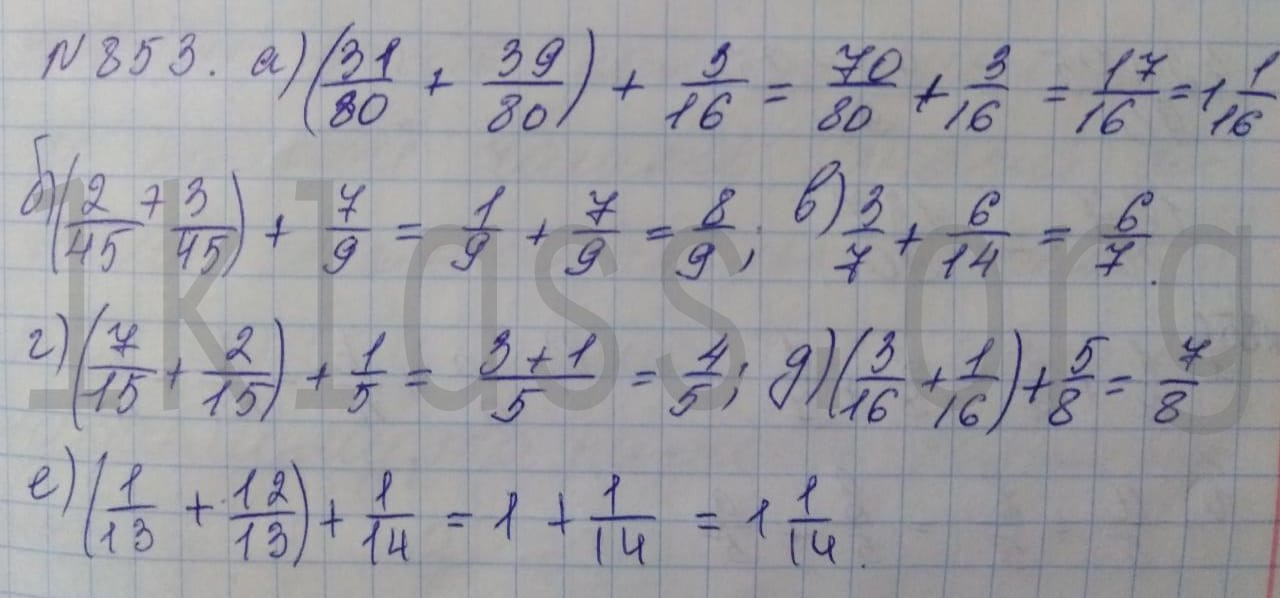 N 853. а) (31/80 + 39/80) + 3/16 = 70/80 + 3/16 = 17/16 = 1 1/16
б) (2/45 + 3/45) + 7/9 = 1/9 + 7/9 = 8/9; в) 3/7 + 6/14 = 6/7.
г) (7/15 + 2/15) + 1/5 = (3+1)/5 = 4/5; д) (3/16 + 1/16) + 5/8 = 7/8
е) (1/13 + 12/13) + 1/14 = 1 + 1/14 = 1 1/14.
1klass.org